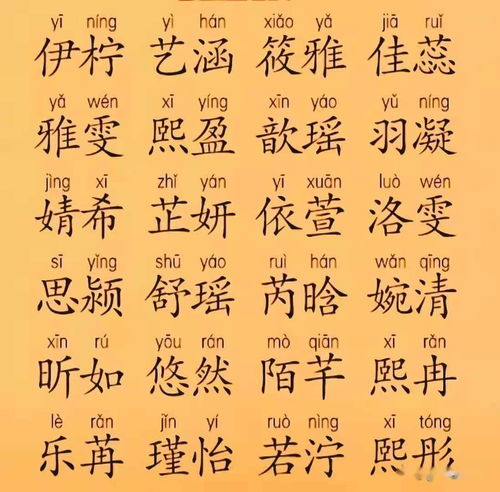 yī níng yì hán xiǎo yǎ jiā ruǐ
伊柠 艺涵 筱雅 佳蕊
yǎ wén xī yíng xīn yáo yǔ níng
雅雯 熙盈 歆瑶 羽凝
jìng xī zhǐ yán yī xuān luò wén
婧希 芷妍 依萱 洛雯
sī yǐng shū yáo ruì hán wǎn qīng
思颍 舒瑶 芮晗 婉清
xīn rú yōu rán mò qiān xī rǎn
昕如 悠然 陌芊 熙冉
lè rǎn jǐn yí ruò nìng xī tóng
乐苒 瑾怡 若泞 熙彤